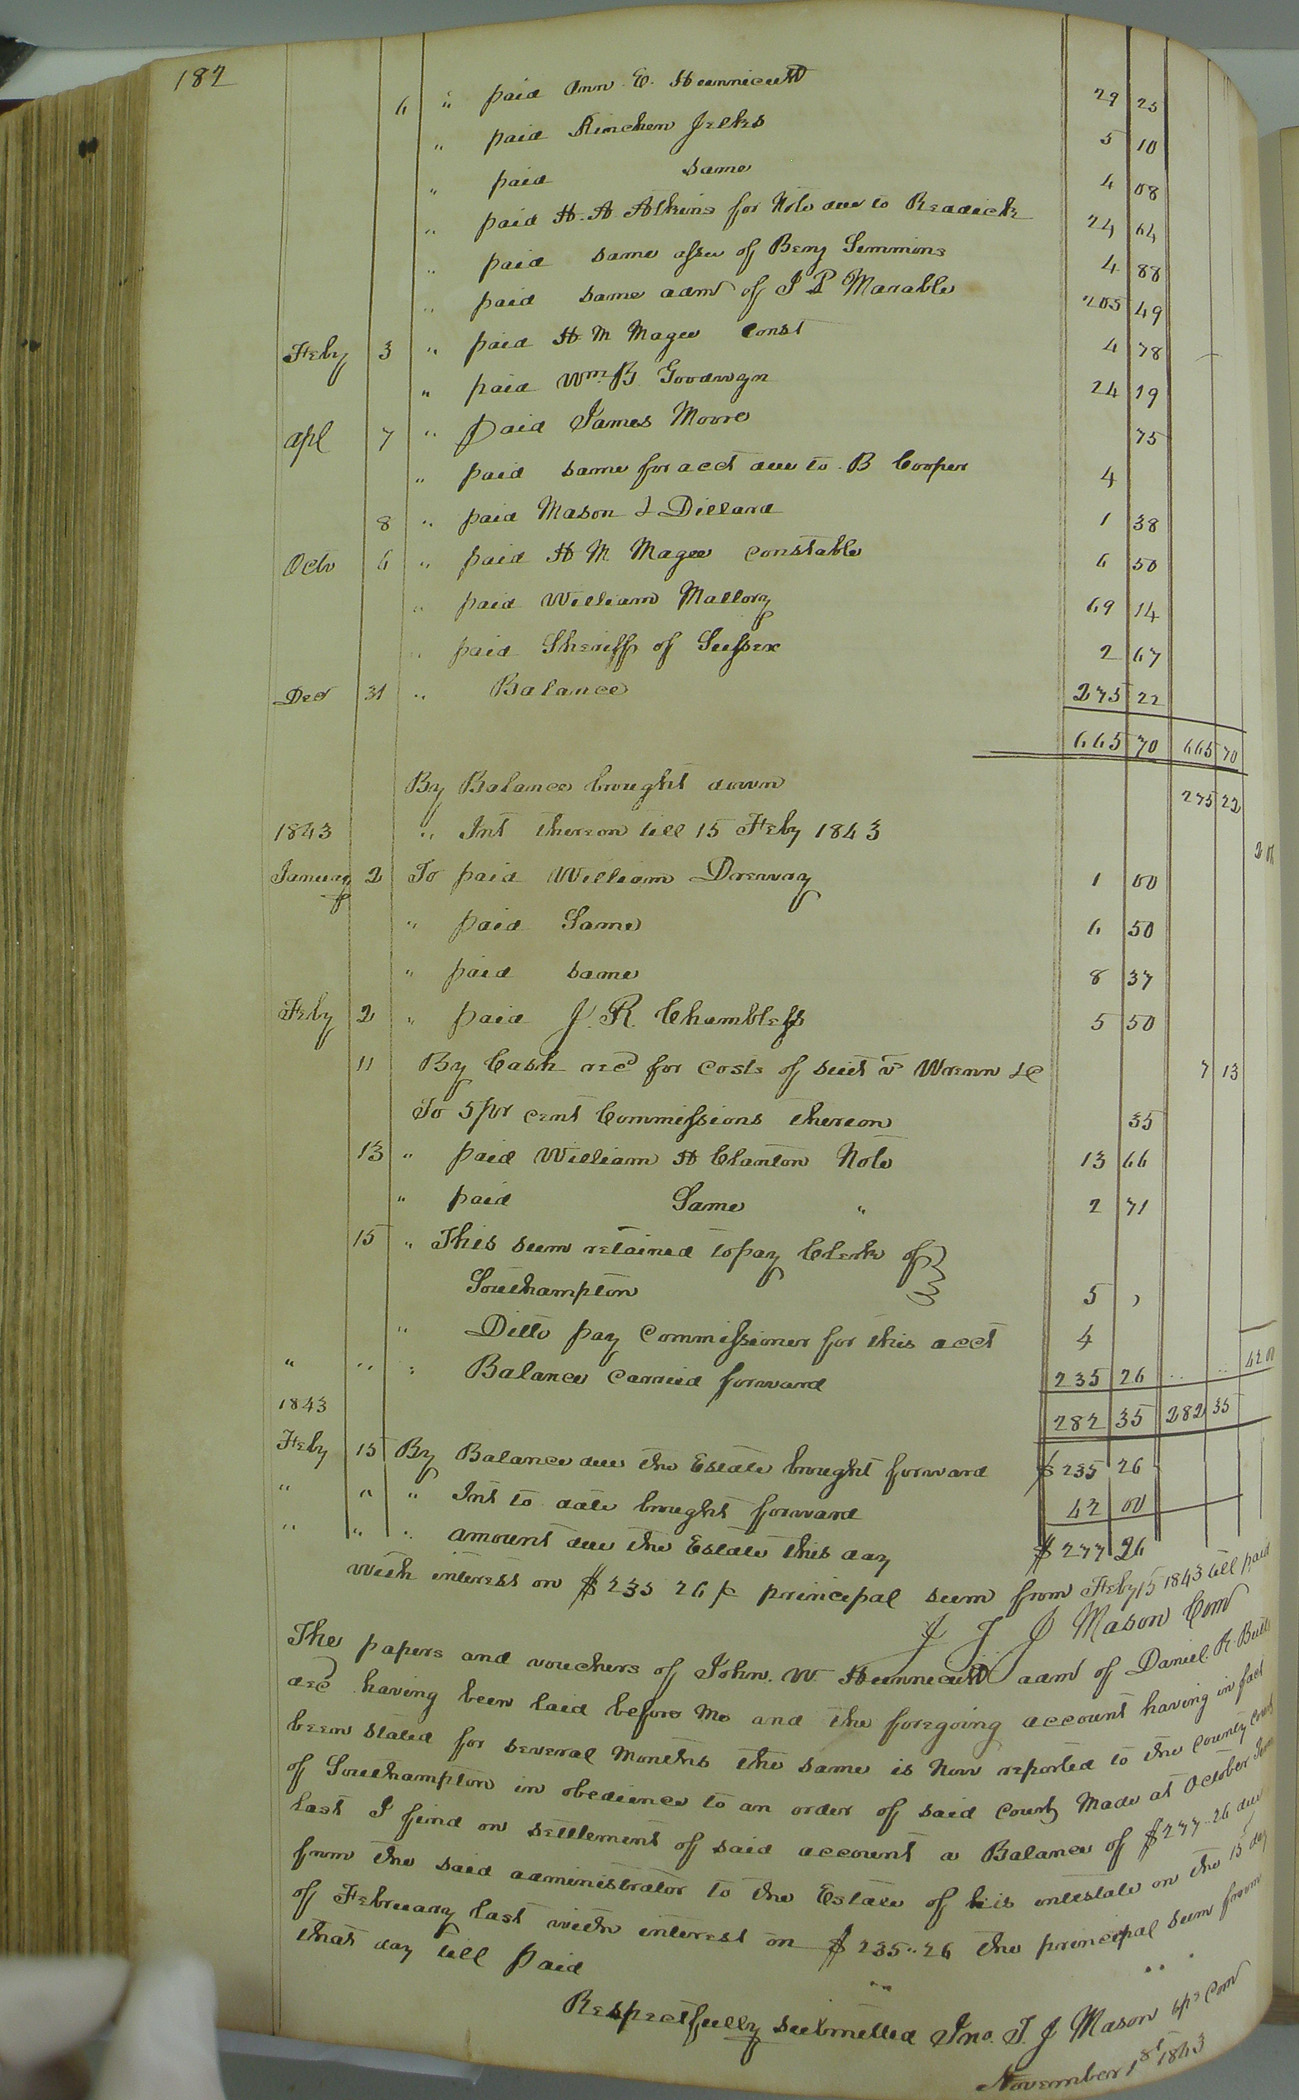 182
6 " paid Ann E. Hunnicutt 29 25
" paid Kinchen Jelks 5 10
" paid same 4 08
" paid H. A. Atkins for Note due to Readick 24 64
" paid same assee of Benj Simmons 4 88
" paid same adm of J P Marable 205 49
Feby 3 " paid H M Magee Const 4 78
" paid Wm B Goodwyn 24 19
apl 7 " paid James Moore 75
" paid same for acct due to B Cooper 4
8 " paid Mason & Dillard 1 38
Octo 6 " paid H M Magee constable 6 50
" paid William Mallory 69 14
" paid Sheriff of Sussex 2 67
Decr 31 " Balance 275 22
665 70 665 70
By Balance brought down 275 22
1843 " Int thereon till 15 Feby 1843
January 2 To paid William Drewry 1 00
" paid Same 6 50
" paid same 8 37
Feby 2 " paid J. R. Chambless 5 50
11 By Cash recd for costs of suit v Wrenn &c 7 13
To 5 pr cent Commissions thereon 35
13 " paid William H Clanton Note 13 66
" paid Same " 2 71
15 " This sum retained to pay Clerk of
Southampton 5 "
" Ditto pay Commissioner for this acct 4
" " " Balance carried forward 235 26 " " 42 00
1843 282 35 282 35
Feby 15 By Balance due the Estate brought forward $235 26
" " " Int to date brought forward 42 00
" " " amount due the Estate this day $277 26
with interest on $235 26/c principal sum from Feby 15 1843 till paid
J T J Mason Comr
The papers and vouchers of John. W. Hunnicutt adm of Daniel R. Bull
decd having been laid before Me and the foregoing account having in fact
been stated for several Months the same is Now reported to the County Court
of Southampton in obedience to an order of said Court Made at October Term
last I find on settlement of said account a Balance of $277-26 due
from the said administrator to the Estate of his intestate on the 15 day
of February last with interest on $235"26 the principal sum from
that day till paid
Respectfully submitted Jno. T. J Mason Comr
November 1st 1843